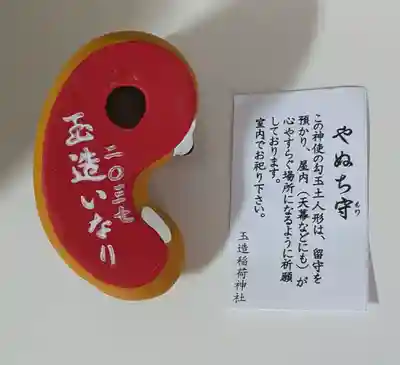 二〇二三七
玉造いなり
やぬち守
もり
この神使の勾玉土人形は、留守を
預かり、屋内（天幕などにも）が
心やすらぐ場所になるように祈願
しております。
室内でお祀り下さい。
玉造稲荷神社